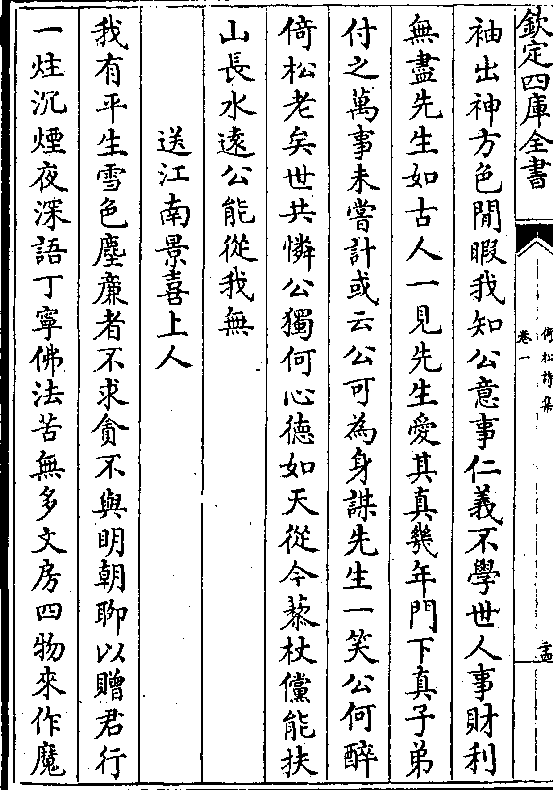 欽定四庫全書
倚松詩集
卷一
袖出神方色閒暇我知公意事仁義不學世人事財利
無盡先生如古人一見先生愛其真幾年門下真子弟
付之萬事未嘗計或云公可為身謀先生一笑公何醉
倚松老矣世共憐公獨何心德如天從今藜杖儻能扶
山長水遠公能從我無
送江南景喜上人
我有平生雪色塵亷者不求貪不與明朝聊以贈君行
一炷沉煙夜深語丁寧佛法苦無多文房四物來作魔